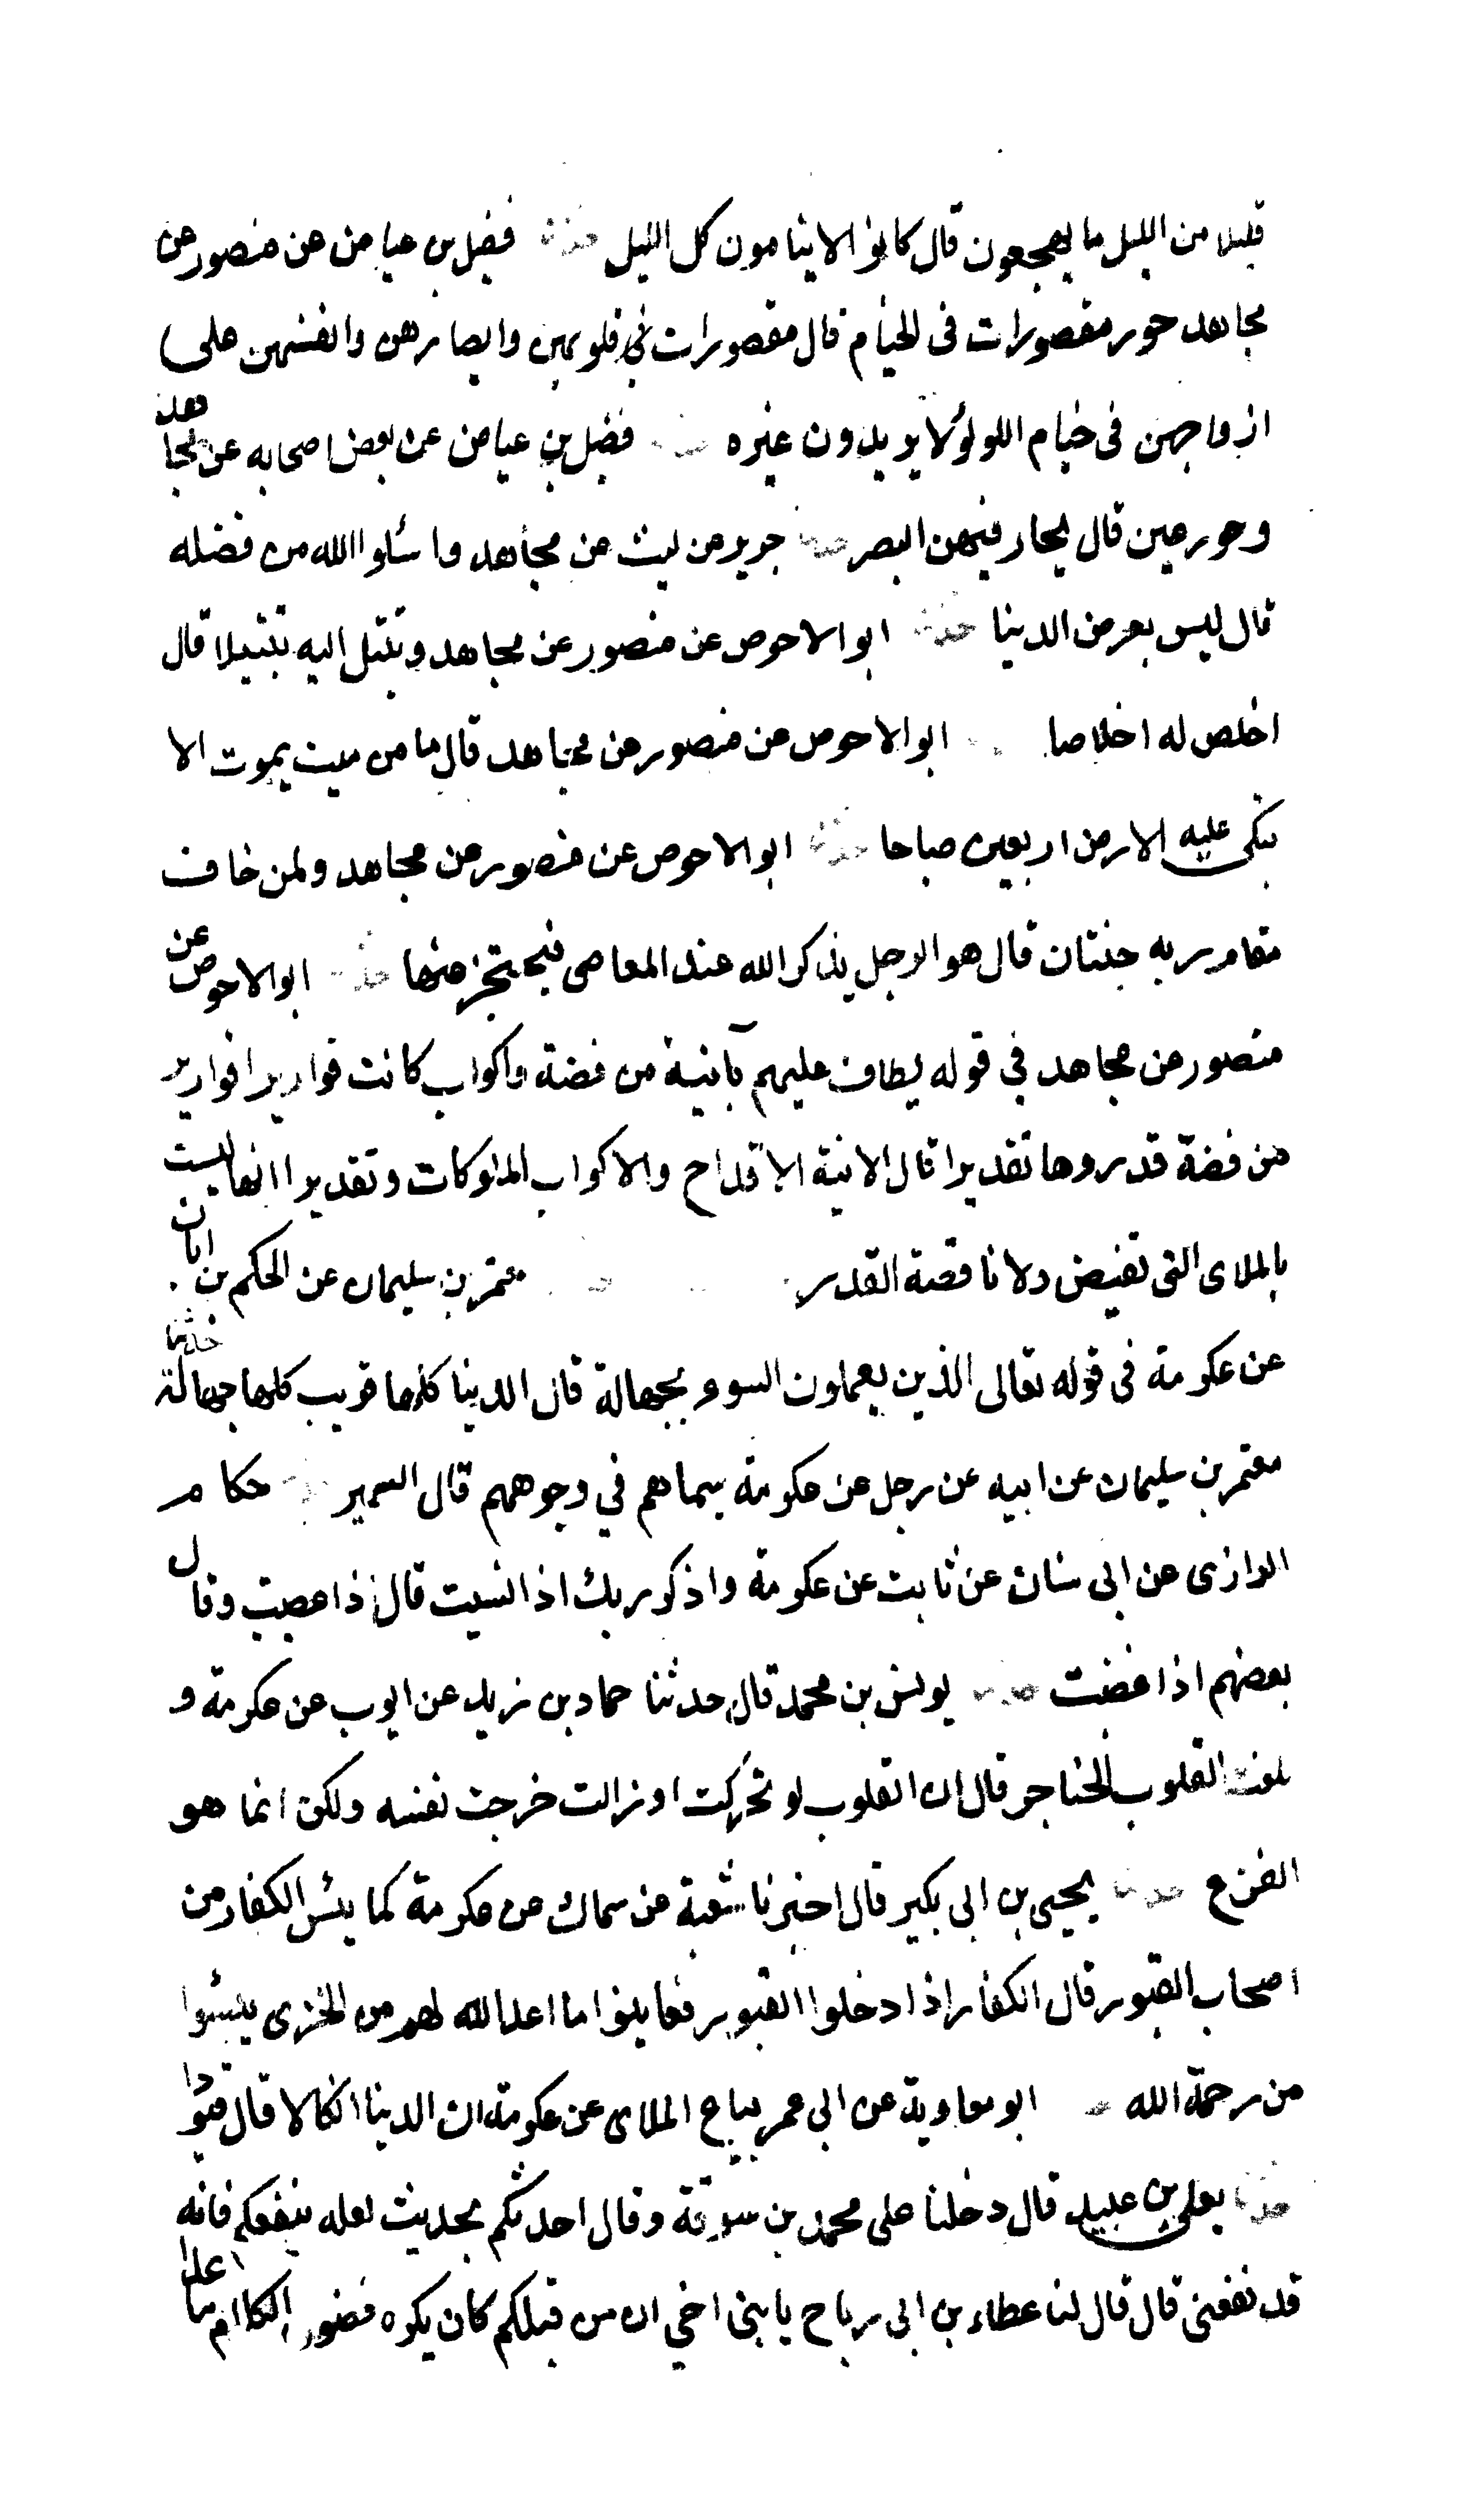 قليلا من الليل ما يهجعون قال كانوا لا ينامون كل الليل حدثنا فضيل بن عياض عن منصور عن
مجاهد حور مقصورات فى الخيام قال مقصورات فى قلوبهن وابصارهن وانفسهن على
ازواجهن فى خيام اللولؤ لا يريدون غيره حدثنا فضيل بن عياض عن بعض اصحابه عن مجاهد
وحور عين قال يحار فيهن البصر حدثنا جرير عن ليث عن مجاهد واسئلوا الله من فضله
قال ليس بعرض الدنيا حدثنا ابو الاحوص عن منصور عن مجاهد وتبتل اليه تبتيلا قال
اخلص له اخلاصا ابو الاحوص عن منصور عن مجاهد قال ما من ميت يموت الا
تبكى عليه الارض اربعين صباحا حدثنا ابو الاحوص عن منصور عن مجاهد ولمن خاف
مقام ربه جنتان قال هو الرجل يذكر الله عند المعاصى فيحتجز عنها حدثنا ابو الاحوص عن
منصور عن مجاهد فى قوله يطاف عليهم بآنية من فضة واكواب كانت قوارير اقوارير
من فضة قدروها تقديرا قال الانية الاقداح والاكواب المكوكات وتقديرا انها ليست
بالملاى التى تفيض ولا ناقصة القدر معتمر بن سليمان عن الحكم بن ابان
عن عكرمة فى قوله تعالى الذين يعملون السوء بجهالة قال الدنيا كلها قريب كلها جهالة حدثنا
معتمر بن سليمان عن ابيه عن رجل عن عكرمة سيماهم في وجوههم قال السهر حدثنا حكام
الرازى عن ابى سنان عن ثابت عن عكرمة واذكر ربك اذا نسيت قال اذا عصيت وقال
بعضهم اذا غضبت حدثنا يونس بن محمد قال حدثنا حماد بن زيد عن ايوب عن عكرمة و
بلغت القلوب الحناجر قال ان القلوب لو تحركت او زالت خرجت نفسه ولكن انما هو
الفزع حدثنا يحيى بن ابى بكير قال اخبرنا شعبة عن سماك عن عكرمة كما يئس الكفار من
اصحاب القبور قال الكفار اذا دخلوا القبور فعاينوا ما اعد الله لهم من الخزى يئسوا
من رحمة الله ابو معاوية عن ابى عمر بياع الملاى عن عكرمة ان الدينا انكالا قال قيودا
حدثنا يعلى بن عبيد قال دخلنا على محمد بن سوقة وقال احدثكم بحديث لعله ينفعكم فانه
قد نفعنى قال قال لنا عطاء بن ابى رباح يا بنى اخي ان من قبلكم كان يكره فضول الكلام ما عدا